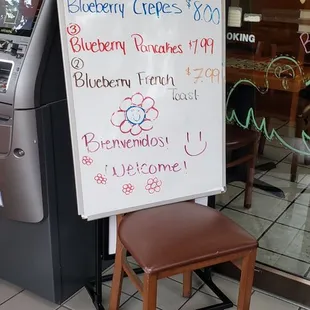 Blueberry Crepes $8.00
③ Blueberry Pancakes $7.99
② Blueberry French Toast $7.99
Bienvenidos!
Welcome!
OKING